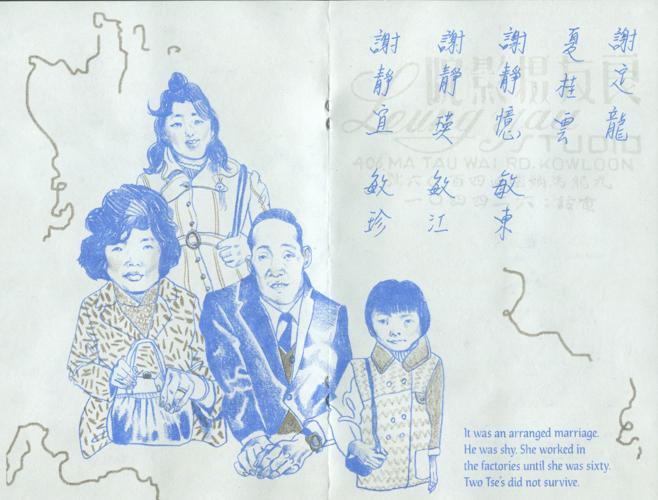 謝定龍
夏桂雲
謝靜憶 敏東
謝靜瑛 敏江
謝靜宜 敏珍
Leung Yau
STUDIO
406 MA TAU WAI RD. KOWLOON
It was an arranged marriage.
He was shy. She worked in
the factories until she was sixty.
Two Tse's did not survive.